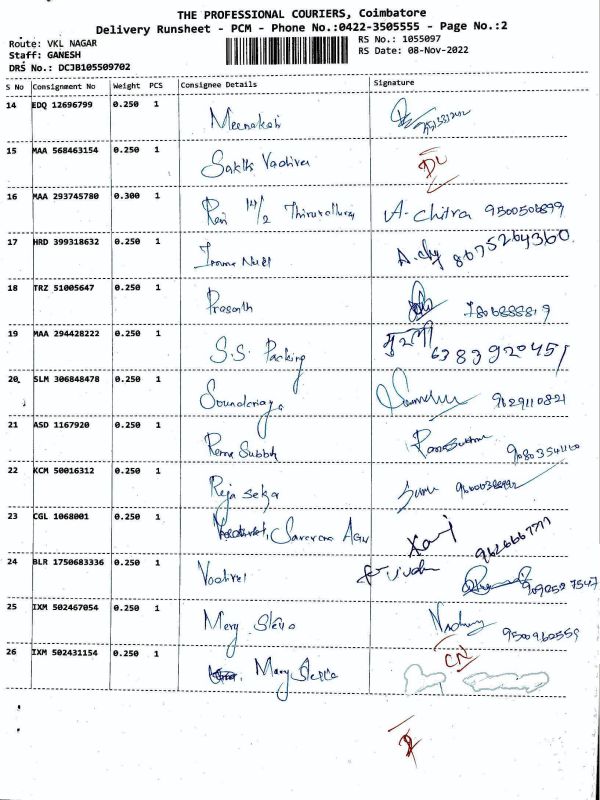 THE PROFESSIONAL COURIERS, Coimbatore
Delivery Runsheet - PCM - Phone No.:0422-3505555 - Page No.:2
Route: VKL NAGAR RS No.: 1055097
Staff: GANESH RS Date: 08-Nov-2022
DRS No.: DCJB105509702
S No Consignment No Weight PCS Consignee Details Signature
14 EDQ 12696799 0.250 1 Meenakshi
15 MAA 568463154 0.250 1 Sakthi Vadivel DL
16 MAA 293745780 0.300 1 Ravi 14/2 Thiruvalluvar A. Chitra 9500506899
17 HRD 399318632 0.250 1 8675264360
18 TRZ 51005647 0.250 1 Prasanth
19 MAA 294428222 0.250 1 S.S. Packing 6383920451
20 SLM 306848478 0.250 1 Soundariya 9629110821
21 ASD 1167920 0.250 1 Rama Subbh
22 KCM 50016312 0.250 1 Raja Sekar
23 CGL 1068001 0.250 1 Saravana 9626667777
24 BLR 1750683336 0.250 1 Vadivel
25 IXM 502467054 0.250 1 Mary Stella 9500960559
26 IXM 502431154 0.250 1 Mary Stella CN